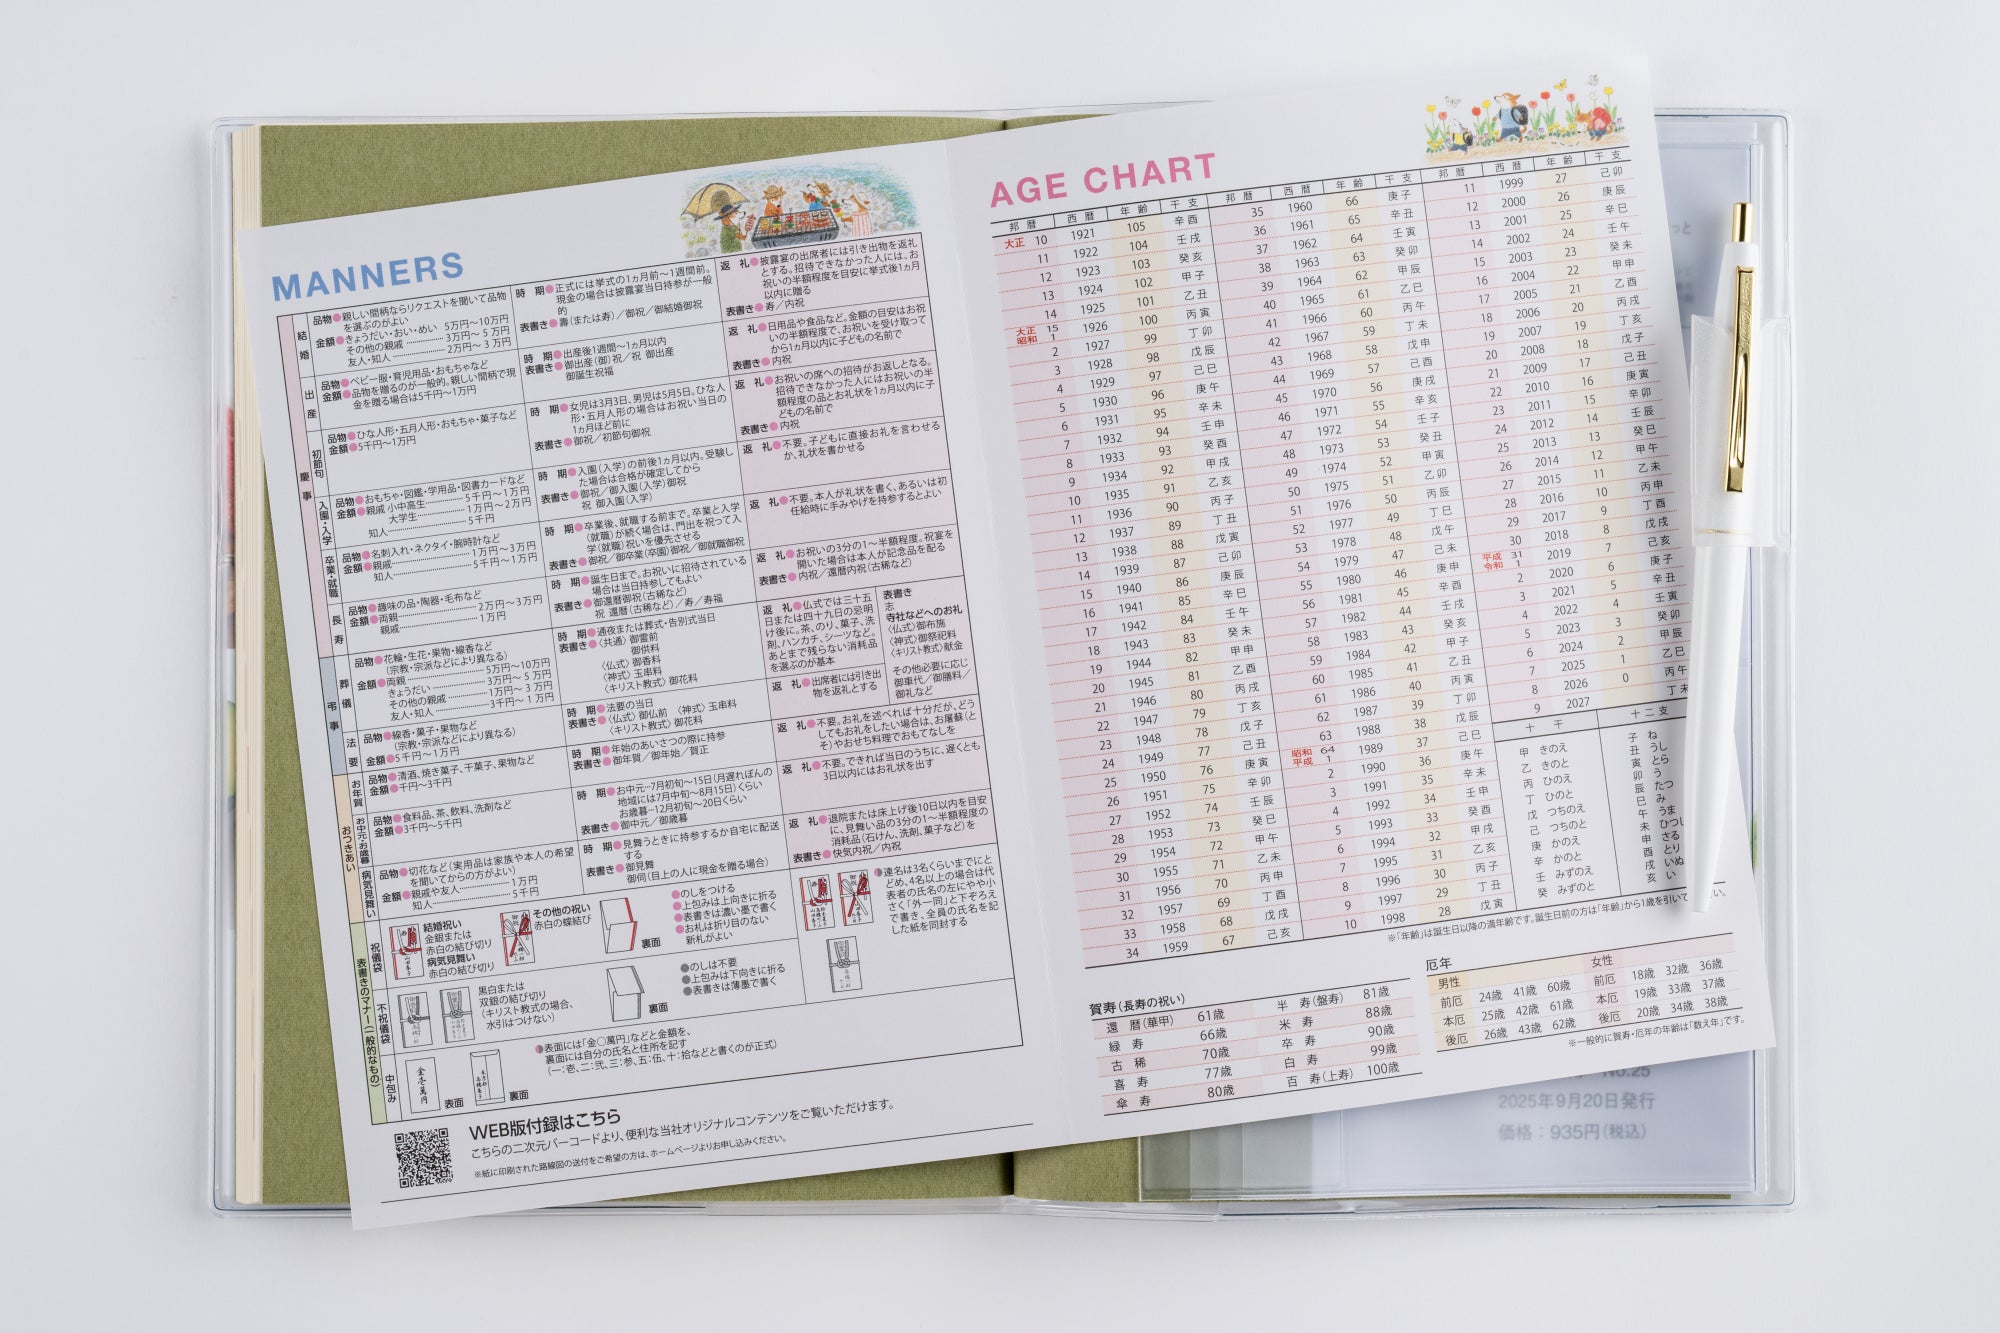 MANNERS
慶事
結婚
品物●親しい間柄ならリクエストを聞いて品物
を選ぶのがよい
金額●きょうだい・おい・めい 5万円～10万円
その他の親戚 3万円～5万円
友人・知人 2万円～3万円
時 期●正式には挙式の1ヵ月前～1週間前。
現金の場合は披露宴当日持参が一般
的
表書き●壽(または寿)／御祝／御結婚御祝
返 礼●披露宴の出席者には引き出物を返礼
とする。招待できなかった人には、お
祝いの半額程度を目安に挙式後1ヵ月
以内に贈る
表書き●寿／内祝
出産
品物●ベビー服・育児用品・おもちゃなど
金額●品物を贈るのが一般的。親しい間柄で現
金を贈る場合は5千円～1万円
時 期●出産後1週間～1ヵ月以内
表書き●御出産(御)祝／祝 御出産
御誕生祝福
返 礼●日用品や食品など。金額の目安はお祝
いの半額程度で、お祝いを受け取って
から1ヵ月以内に子どもの名前で
表書き●内祝
初節句
品物●ひな人形・五月人形・おもちゃ・菓子など
金額●5千円～1万円
時 期●女児は3月3日、男児は5月5日。ひな人
形・五月人形の場合はお祝い当日の
1ヵ月ほど前に
表書き●御祝／初節句御祝
返 礼●お祝いの席への招待がお返しとなる。
招待できなかった人にはお祝いの半
額程度の品とお礼状を1ヵ月以内に子
どもの名前で
表書き●内祝
入園・入学
品物●おもちゃ・図鑑・学用品・図書カードなど
金額●親戚 小中高生 5千円～1万円
大学生 1万円～2万円
知人 5千円
時 期●入園(入学)の前後1ヵ月以内。受験し
た場合は合格が確定してから
表書き●御祝／御入園(入学)御祝
祝 御入園(入学)
返 礼●不要。子どもに直接お礼を言わせる
か、礼状を書かせる
卒業・就職
品物●名刺入れ・ネクタイ・腕時計など
金額●親戚 1万円～3万円
知人 5千円～1万円
時 期●卒業後、就職する前まで。卒業と入学
(就職)が続く場合は、門出を祝って入
学(就職)祝いを優先させる
表書き●御祝／御卒業(卒園)御祝／御就職御祝
返 礼●不要。本人が礼状を書く、あるいは初
任給時に手みやげを持参するとよい
長寿
品物●趣味の品・陶器・毛布など
金額●両親 2万円～3万円
親戚 1万円
時 期●誕生日まで。お祝いに招待されている
場合は当日持参してもよい
表書き●御還暦御祝(古稀など)
祝 還暦(古稀など)／寿／寿福
返 礼●お祝いの3分の1～半額程度。祝宴を
開いた場合は本人が記念品を配る
表書き●内祝／還暦内祝(古稀など)
弔事
葬儀
品物●花輪・生花・果物・線香など
(宗教・宗派などにより異なる)
金額●両親 5万円～10万円
きょうだい 3万円～5万円
その他の親戚 1万円～3万円
友人・知人 3千円～1万円
時 期●通夜または葬式・告別式当日
表書き●〈共通〉御霊前
御供料
〈仏式〉御香料
〈神式〉玉串料
〈キリスト教式〉御花料
返 礼●仏式では三十五
日または四十九日の忌明
け後に。茶、のり、菓子、洗
剤、ハンカチ、シーツなど。
あとまで残らない消耗品
を選ぶのが基本
表書き
志
寺社などへのお礼
〈仏式〉御布施
〈神式〉御祭祀料
〈キリスト教式〉献金
その他必要に応じ
御車代／御膳料／
御礼など
法要
品物●線香・菓子・果物など
(宗教・宗派などにより異なる)
金額●5千円～1万円
時 期●法要の当日
表書き●〈仏式〉御仏前 〈神式〉玉串料
〈キリスト教式〉御花料
返 礼●出席者には引き出
物を返礼とする
おつきあい
お年賀
品物●清酒、焼き菓子、干菓子、果物など
金額●千円～3千円
時 期●年始のあいさつの際に持参
表書き●御年賀／御年始／賀正
返 礼●不要。お礼を述べれば十分だが、どう
してもお礼をしたい場合は、お屠蘇(と
そ)やおせち料理でおもてなしを
お中元・お歳暮
品物●食料品、茶、飲料、洗剤など
金額●3千円～5千円
時 期●お中元…7月初旬～15日(月遅れぼんの
地域には7月中旬～8月15日)くらい
お歳暮…12月初旬～20日くらい
表書き●御中元／御歳暮
返 礼●不要。できれば当日のうちに、遅くとも
3日以内にはお礼状を出す
病気見舞い
品物●切花など(実用品は家族や本人の希望
を聞いてからの方がよい)
金額●親戚や友人 1万円
知人 5千円
時 期●見舞うときに持参するか自宅に配送
する
表書き●御見舞
御伺(目上の人に現金を贈る場合)
返 礼●退院または床上げ後10日以内を目安
に、見舞い品の3分の1～半額程度の
消耗品(石けん、洗剤、菓子など)を
表書き●快気内祝／内祝
表書きのマナー(一般的なもの)
祝儀袋
結婚祝い
金銀または
赤白の結び切り
病気見舞い
赤白の結び切り
その他の祝い
赤白の蝶結び
裏面
●のしをつける
●上包みは上向きに折る
●表書きは濃い墨で書く
●お札は折り目のない
新札がよい
●連名は3名くらいまでにと
どめ、4名以上の場合は代
表者の氏名の左にやや小
さく「外一同」と下ぞろえ
で書き、全員の氏名を記
した紙を同封する
不祝儀袋
黒白または
双銀の結び切り
(キリスト教式の場合、
水引はつけない)
裏面
●のしは不要
●上包みは下向きに折る
●表書きは薄墨で書く
中包み
金壱萬円
表面
裏面
●表面には「金○萬円」などと金額を、
裏面には自分の氏名と住所を記す
(一：壱、二：弐、三：参、五：伍、十：拾などと書くのが正式)
WEB版付録はこちら
こちらの二次元バーコードより、便利な当社オリジナルコンテンツをご覧いただけます。
※紙に印刷された路線図の送付をご希望の方は、ホームページよりお申し込みください。
AGE CHART
邦暦 西暦 年齢 干支
大正 10 1921 105 辛酉
11 1922 104 壬戌
12 1923 103 癸亥
13 1924 102 甲子
14 1925 101 乙丑
大正 15 昭和 1 1926 100 丙寅
2 1927 99 丁卯
3 1928 98 戊辰
4 1929 97 己巳
5 1930 96 庚午
6 1931 95 辛未
7 1932 94 壬申
8 1933 93 癸酉
9 1934 92 甲戌
10 1935 91 乙亥
11 1936 90 丙子
12 1937 89 丁丑
13 1938 88 戊寅
14 1939 87 己卯
15 1940 86 庚辰
16 1941 85 辛巳
17 1942 84 壬午
18 1943 83 癸未
19 1944 82 甲申
20 1945 81 乙酉
21 1946 80 丙戌
22 1947 79 丁亥
23 1948 78 戊子
24 1949 77 己丑
25 1950 76 庚寅
26 1951 75 辛卯
27 1952 74 壬辰
28 1953 73 癸巳
29 1954 72 甲午
30 1955 71 乙未
31 1956 70 丙申
32 1957 69 丁酉
33 1958 68 戊戌
34 1959 67 己亥
邦暦 西暦 年齢 干支
35 1960 66 庚子
36 1961 65 辛丑
37 1962 64 壬寅
38 1963 63 癸卯
39 1964 62 甲辰
40 1965 61 乙巳
41 1966 60 丙午
42 1967 59 丁未
43 1968 58 戊申
44 1969 57 己酉
45 1970 56 庚戌
46 1971 55 辛亥
47 1972 54 壬子
48 1973 53 癸丑
49 1974 52 甲寅
50 1975 51 乙卯
51 1976 50 丙辰
52 1977 49 丁巳
53 1978 48 戊午
54 1979 47 己未
55 1980 46 庚申
56 1981 45 辛酉
57 1982 44 壬戌
58 1983 43 癸亥
59 1984 42 甲子
60 1985 41 乙丑
61 1986 40 丙寅
62 1987 39 丁卯
63 1988 38 戊辰
昭和 64 平成 1 1989 37 己巳
2 1990 36 庚午
3 1991 35 辛未
4 1992 34 壬申
5 1993 33 癸酉
6 1994 32 甲戌
7 1995 31 乙亥
8 1996 30 丙子
9 1997 29 丁丑
10 1998 28 戊寅
邦暦 西暦 年齢 干支
11 1999 27 己卯
12 2000 26 庚辰
13 2001 25 辛巳
14 2002 24 壬午
15 2003 23 癸未
16 2004 22 甲申
17 2005 21 乙酉
18 2006 20 丙戌
19 2007 19 丁亥
20 2008 18 戊子
21 2009 17 己丑
22 2010 16 庚寅
23 2011 15 辛卯
24 2012 14 壬辰
25 2013 13 癸巳
26 2014 12 甲午
27 2015 11 乙未
28 2016 10 丙申
29 2017 9 丁酉
30 2018 8 戊戌
平成 31 令和 1 2019 7 己亥
2 2020 6 庚子
3 2021 5 辛丑
4 2022 4 壬寅
5 2023 3 癸卯
6 2024 2 甲辰
7 2025 1 乙巳
8 2026 0 丙午
9 2027 丁未
十干
甲 きのえ
乙 きのと
丙 ひのえ
丁 ひのと
戊 つちのえ
己 つちのと
庚 かのえ
辛 かのと
壬 みずのえ
癸 みずのと
十二支
子 ね
丑 うし
寅 とら
卯 う
辰 たつ
巳 み
午 うま
未 ひつじ
申 さる
酉 とり
戌 いぬ
亥 い
※「年齢」は誕生日以降の満年齢です。誕生日前の方は「年齢」から1歳を引いて
い。
賀寿(長寿の祝い)
還暦(華甲) 61歳
緑寿 66歳
古稀 70歳
喜寿 77歳
傘寿 80歳
半寿(盤寿) 81歳
米寿 88歳
卒寿 90歳
白寿 99歳
百寿(上寿) 100歳
厄年
男性
前厄 24歳 41歳 60歳
本厄 25歳 42歳 61歳
後厄 26歳 43歳 62歳
女性
前厄 18歳 32歳 36歳
本厄 19歳 33歳 37歳
後厄 20歳 34歳 38歳
※一般的に賀寿・厄年の年齢は「数え年」です。
No.25
2025年9月20日発行
価格：935円(税込)